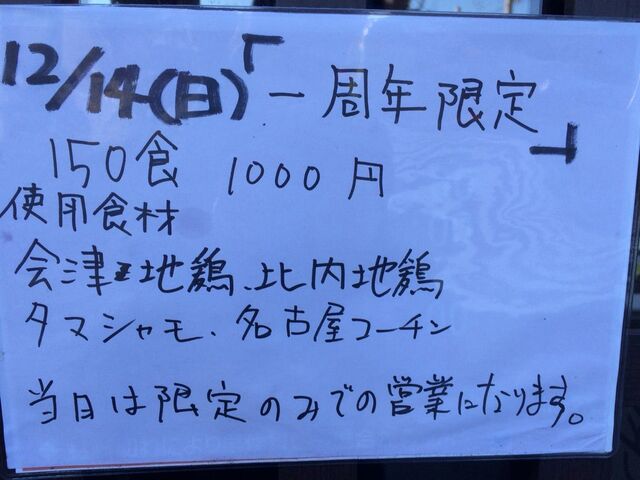 12/14(日)「一周年限定」
150食 1000円
使用食材
会津地鶏、比内地鶏
タマシャモ、名古屋コーチン
当日は限定のみでの営業になります。